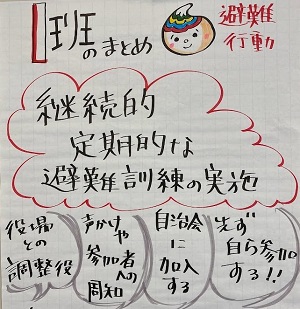 1班のまとめ
避難
行動
継続的
定期的な
避難訓練の実施
役場
との
調整役
声かけや
参加者
への
周知
自治会
に
加入
する
先ず
自ら参加
する!!